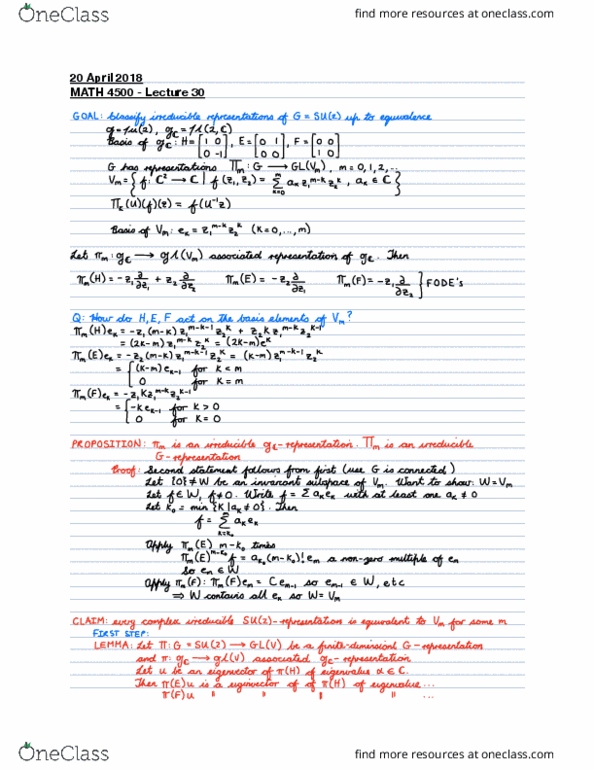 OneClass
find more resources at oneclass.com
20 April 2018
MATH 4500 - Lecture 30
GOAL: Classify irreducible representations of G = SU(2) up to equivalence
g = su(2), g_C = sl(2, C)
Basis of g_C: H = [1 0; 0 -1], E = [0 1; 0 0], F = [0 0; 1 0]
G has representations Π_m: G → GL(V_m), m = 0, 1, 2, ...
V_m = { f: C² → C | f(z₁, z₂) = Σ_{k=0}^m a_k z₁^{m-k} z₂^k, a_k ∈ C }
Π_k(U)(f)(z) = f(U⁻¹z)
Basis of V_m: e_k = z₁^{m-k} z₂^k (k=0,...,m)
Let π_m: g_C → gl(V_m) associated representation of g_C. Then
π_m(H) = -z₁ ∂/∂z₁ + z₂ ∂/∂z₂ π_m(E) = -z₂ ∂/∂z₁ π_m(F) = -z₁ ∂/∂z₂ } FODE's
Q: How do H, E, F act on the basis elements of V_m?
π_m(H)e_k = -z₁(m-k)z₁^{m-k-1} z₂^k + z₂kz₁^{m-k} z₂^{k-1}
= (2k-m)z₁^{m-k} z₂^k = (2k-m)e^k
π_m(E)e_k = -z₂(m-k)z₁^{m-k-1} z₂^k = (k-m)z₁^{m-k-1} z₂^k
= { (k-m)e_{k-1} for k < m
0 for k = m
π_m(F)e_k = -z₁kz₁^{m-k} z₂^{k-1}
= { -ke_{k-1} for k > 0
0 for k = 0
PROPOSITION: π_m is an irreducible g_C-representation. Π_m is an irreducible
G-representation
Proof: Second statement follows from first (use G is connected)
Let {0} ≠ W be an invariant subspace of V_m. Want to show: W = V_m
Let f ∈ W, f ≠ 0. Write f = Σ a_k e_k with at least one a_k ≠ 0
Let k₀ = min {k | a_k ≠ 0}. Then
f = Σ_{k=k₀}^m a_k e_k
Apply π_m(E) m-k₀ times
π_m(E)^{m-k₀} f = a_{k₀}(m-k₀)! e_m a non-zero multiple of e_m
So e_m ∈ W
Apply π_m(F): π_m(F)e_m = C e_{m-1} so e_{m-1} ∈ W, etc
⇒ W contains all e_k so W = V_m
CLAIM: every complex irreducible SU(2)-representation is equivalent to V_m for some m
FIRST STEP:
LEMMA: Let Π: G = SU(2) → GL(V) be a finite-dimensionl G-representation
and π: g_C → gl(V) associated g_C-representation
Let u be an eigenvector of π(H) of eigenvalue α ∈ C.
Then π(E)u is a eigenvector of of π(H) of eigenvalue ...
π(F)u " " " " ...
OneClass
find more resources at oneclass.com